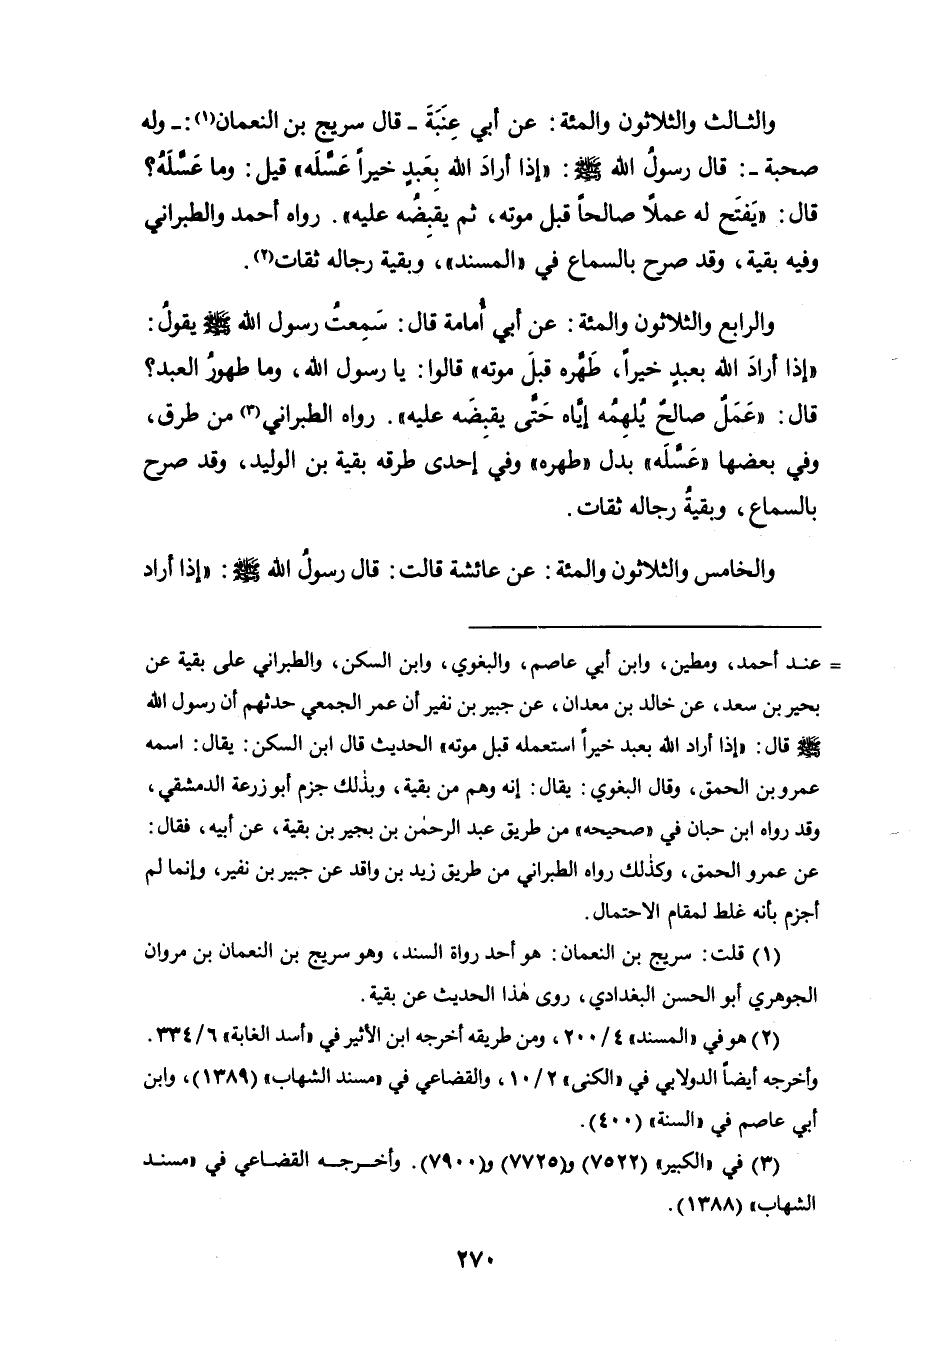 والثالث والثلاثون والمئة: عن أبي عِنَبَةَ ـ قال سريج بن النعمان(١): ـ وله
صحبة ـ: قال رسولُ الله ﷺ: «إذا أرادَ الله بِعَبدٍ خيراً عَسَّلَه» قيل: وما عَسَّلَهُ؟
قال: «يَفتَح له عملاً صالحاً قبل موته، ثم يقبِضُه عليه». رواه أحمد والطبراني
وفيه بقية، وقد صرح بالسماع في «المسند»، وبقية رجاله ثقات(٢).
والرابع والثلاثون والمئة: عن أبي أُمامة قال: سَمِعتُ رسول الله ﷺ يقولُ:
«إذا أرادَ الله بعبدٍ خيراً، طَهَّره قبلَ موته» قالوا: يا رسول الله، وما طهورُ العبد؟
قال: «عَمَلٌ صالحٌ يُلهِمُه إيَّاه حَتَّى يقبِضَه عليه». رواه الطبراني(٣) من طرق،
وفي بعضها «عَسَّلَه» بدل «طهره» وفي إحدى طرقه بقية بن الوليد، وقد صرح
بالسماع، وبقيةُ رجاله ثقات.
والخامس والثلاثون والمئة: عن عائشة قالت: قال رسولُ الله ﷺ: «إذا أراد
= عند أحمد، ومطين، وابن أبي عاصم، والبغوي، وابن السكن، والطبراني على بقية عن
بحير بن سعد، عن خالد بن معدان، عن جبير بن نفير أن عمر الجمعي حدثهم أن رسول الله
ﷺ قال: «إذا أراد الله بعبد خيراً استعمله قبل موته» الحديث قال ابن السكن: يقال: اسمه
عمرو بن الحمق، وقال البغوي: يقال: إنه وهم من بقية، وبذٰلك جزم أبو زرعة الدمشقي،
وقد رواه ابن حبان في «صحيحه» من طريق عبد الرحمٰن بن بجير بن بقية، عن أبيه، فقال:
عن عمرو الحمق، وكذٰلك رواه الطبراني من طريق زيد بن واقد عن جبير بن نفير، وإنما لم
أجزم بأنه غلط لمقام الاحتمال.
(١) قلت: سريج بن النعمان: هو أحد رواة السند، وهو سريج بن النعمان بن مروان
الجوهري أبو الحسن البغدادي، روى هٰذا الحديث عن بقية.
(٢) هو في «المسند» ٤/٢٠٠، ومن طريقه أخرجه ابن الأثير في «أسد الغابة» ٦/٣٣٤.
وأخرجه أيضاً الدولابي في «الكنى» ٢/١٠، والقضاعي في «مسند الشهاب» (١٣٨٩)، وابن
أبي عاصم في «السنة» (٤٠٠).
(٣) في «الكبير» (٧٥٢٢) و(٧٧٢٥) و(٧٩٠٠). وأخرجه القضاعي في «مسند
الشهاب» (١٣٨٨).
٢٧٠